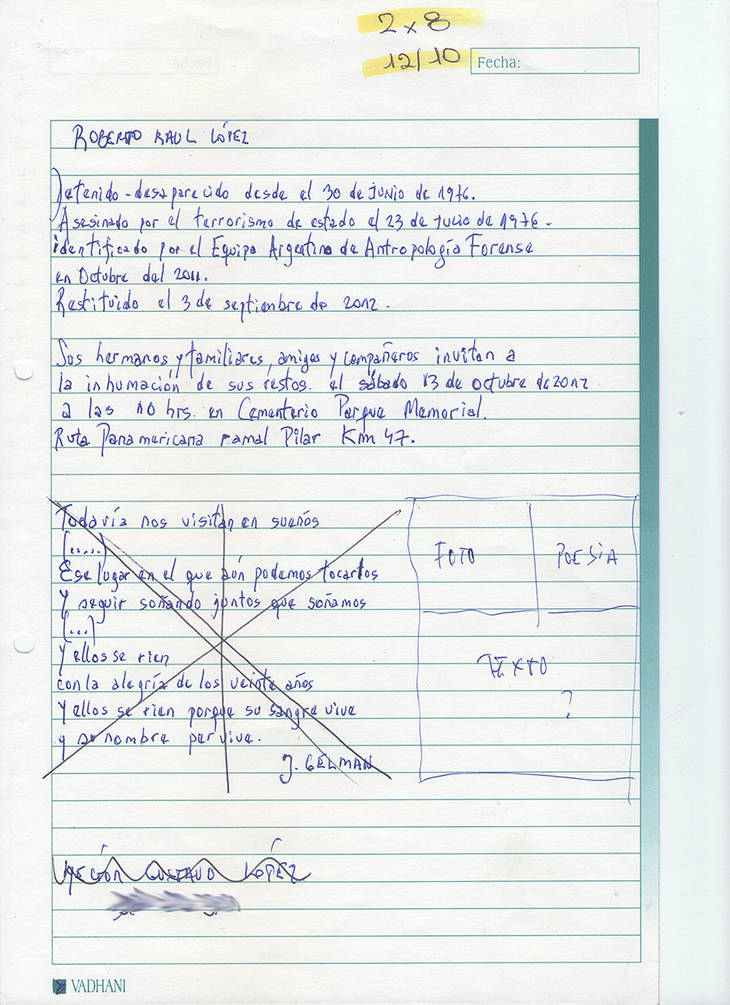 2 x 8
12/10
Fecha:
ROBERTO RAUL LÓPEZ
Detenido-desaparecido desde el 30 de junio de 1976.
Asesinado por el terrorismo de estado el 23 de julio de 1976-
identificado por el Equipo Argentino de Antropología Forense
en Octubre del 2011.
Restituido el 3 de septiembre de 2012.
Sus hermanos y familiares, amigos y compañeros invitan a
la inhumación de sus restos. el sábado 13 de octubre de 2012
a las 10 hrs. en Cementerio Parque Memorial.
Ruta Panamericana ramal Pilar Km 47.
Todavía nos visitan en sueños
[.....]
Ese lugar en el que aún podemos tocarlos
Y seguir soñando juntos que soñamos
[...]
Y ellos se rien
con la alegría de los veinte años
Y ellos se rien porque su sangre vive
y su nombre pervive.
J. GELMAN
FOTO
POESIA
TEXTO
?
HÉCTOR GUSTAVO LÓPEZ
VADHANI